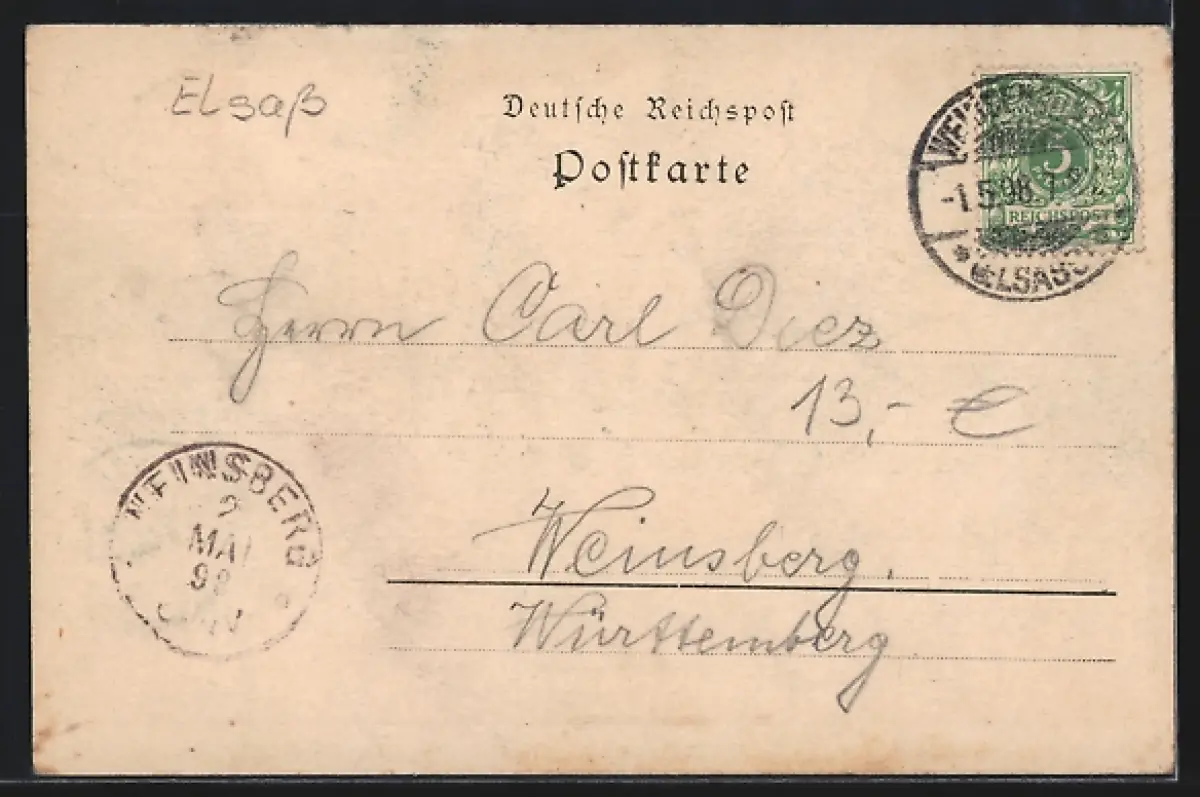 Elsaß
Deutsche Reichspost
Postkarte
-1.5.98. 7-8
5
REICHSPOST
* (ELSASS
Herrn Carl Diez
13,- €
WEINSBERG
2
MAI
98
Weinsberg,
Württemberg